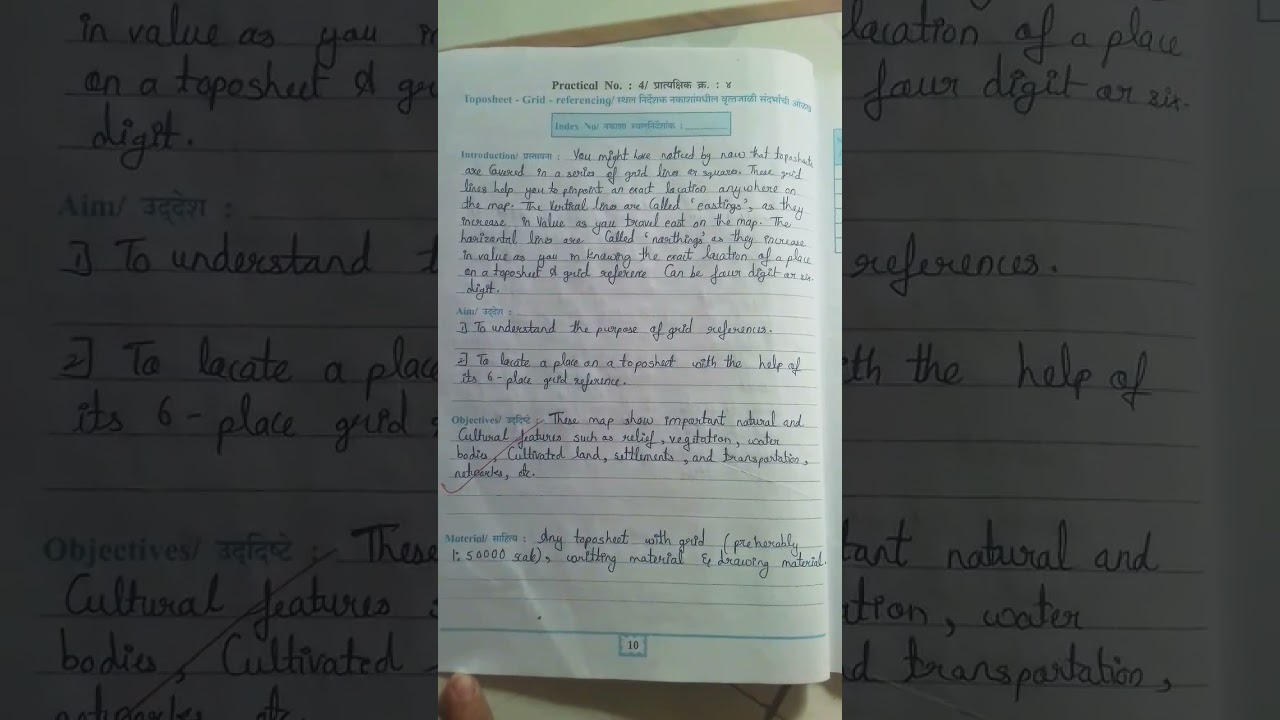 Practical No. : 4/ प्रात्यक्षिक क्र. : ४
Toposheet - Grid - referencing/ स्थल निर्देशक नकाशांमधील वृत्तजाळी संदर्भाची ओळख
Index No/ नकाशा स्थलनिर्देशांक :
Introduction/ प्रस्तावना : You might have noticed by now that toposheets
are Covered in a series of grid lines or squares. These grid
lines help you to pinpoint an exact location anywhere on
the map. The vertical lines are Called 'eastings', as they
increase in Value as you travel east on the map. The
horizontal lines are Called 'northings' as they increase
in value as you m knowing the exact location of a place
on a toposheet A grid reference Can be four digit or six-
digit.
Aim/ उद्देश :
1] To understand the purpose of grid references.
2] To locate a place on a toposheet with the help of
its 6 - place grid reference.
Objectives/ उद्दिष्टे : These map show important natural and
Cultural features such as relief, vegitation, water
bodies, Cultivated land, settlements, and transportation,
networks, etc.
Material/ साहित्य : Any toposheet with grid (preherably
1: 50000 scale), writting material & drawing material.
10